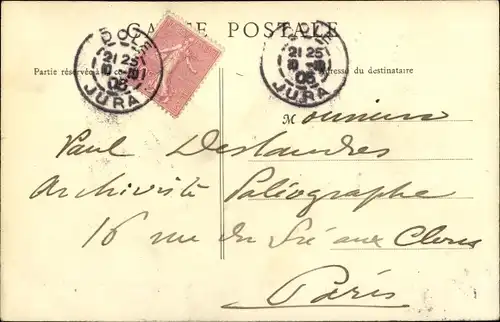 CARTE POSTALE
Partie réservée à la co
Adresse du destinataire
DOLE
21 25
10 -10
05
JURA
21 25
10 -10
05
JURA
M onsieur
Paul Deslandres
Archiviste Paléographe
16 rue du Pré aux Clercs
Paris